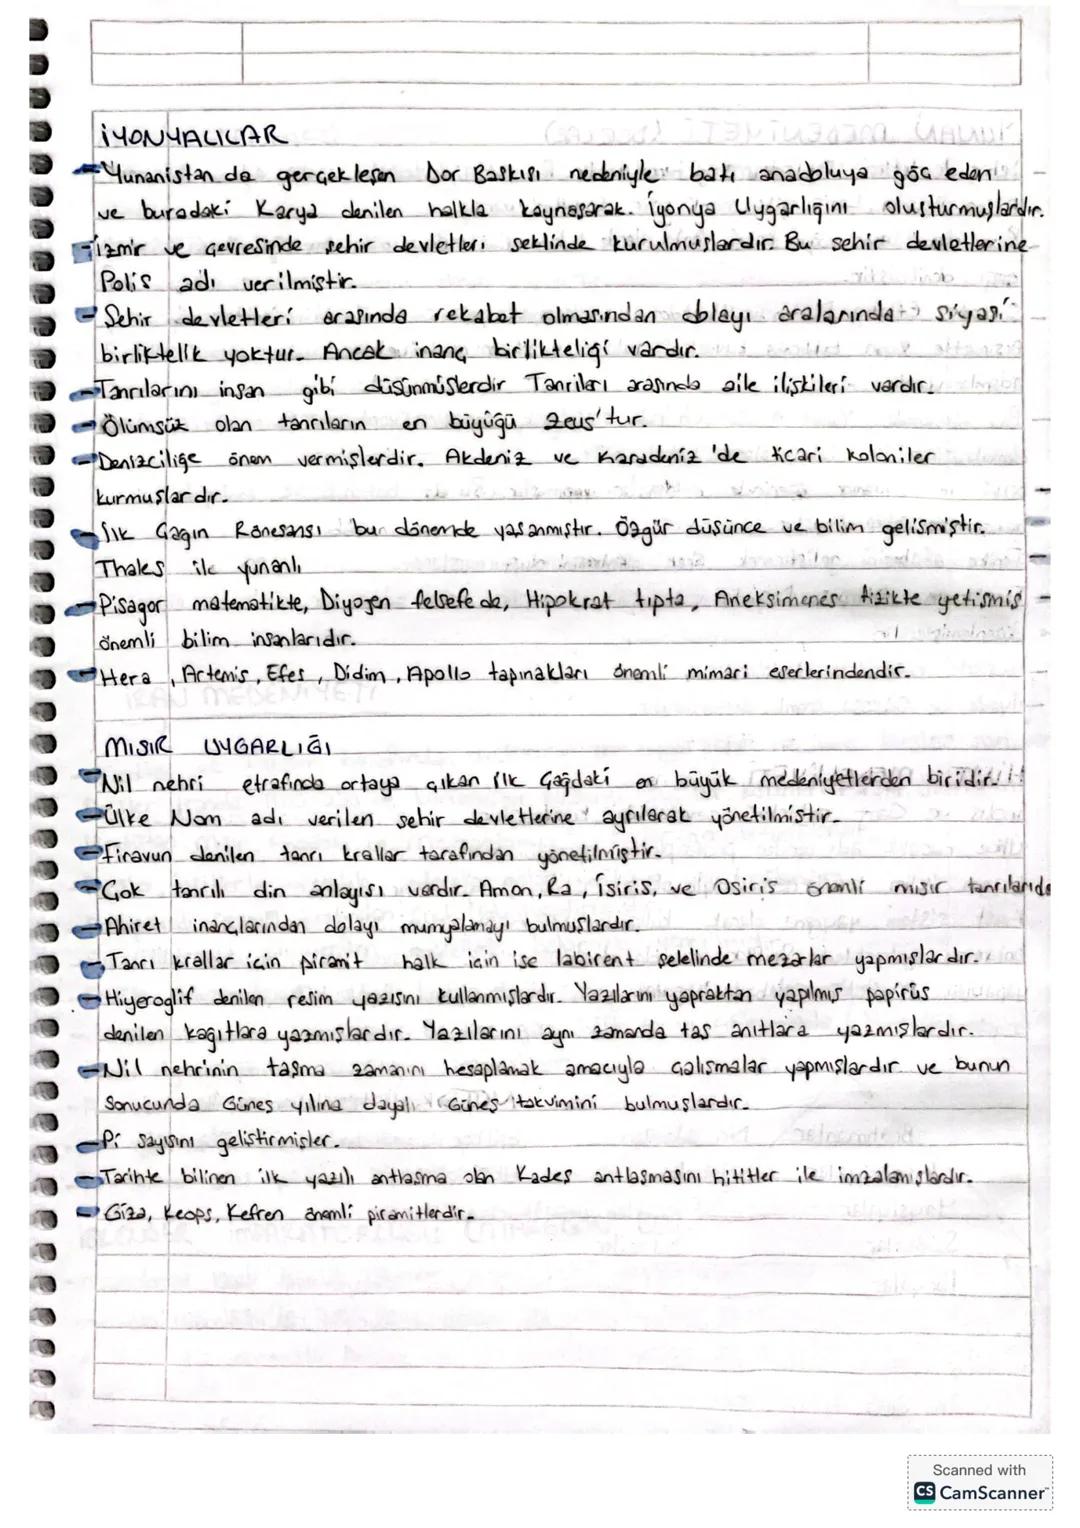 İYONYALILAR
- Yunanistan da gerçekleşen Dor Baskısı nedeniyle batı anadoluya göç eden
ve buradaki Karya denilen halkla kaynaşarak. İyonya Uygarlığını oluşturmuşlardır.
- İzmir ve çevresinde şehir devletleri şeklinde kurulmuşlardır. Bu şehir devletlerine
Polis adı verilmiştir.
- Şehir devletleri arasında rekabet olmasından dolayı aralarında siyasi
birliktelik yoktur. Ancak inanç birlikteliği vardır.
- Tanrılarını insan gibi düşünmüşlerdir Tanrıları arasında aile ilişkileri vardır.
- Ölümsüz olan tanrıların en büyüğü Zeus'tur.
- Denizciliğe önem vermişlerdir. Akdeniz ve Karadeniz'de ticari koloniler
kurmuşlardır.
- İlk Çağın Rönesansı bu dönemde yaşanmıştır. Özgür düşünce ve bilim gelişmiştir.
Thales ile yunanlı
- Pisagor matematikte, Diyojen felsefede, Hipokrat tıpta, Aneksimenes fizikte yetişmiş
önemli bilim insanlarıdır.
- Hera, Artemis, Efes, Didim, Apollo tapınakları önemli mimari eserlerindendir.
MISIR UYGARLIĞI
- Nil nehri etrafında ortaya çıkan ilk Çağdaki en büyük medeniyetlerden biridir.
- Ülke Nom adı verilen şehir devletlerine ayrılarak yönetilmiştir.
- Firavun denilen tanrı krallar tarafından yönetilmiştir.
- Çok tanrılı din anlayışı vardır. Amon, Ra, İsiris, ve Osiris önemli mısır tanrılarıdı
- Ahiret inançlarından dolayı mumyalamayı bulmuşlardır.
- Tanrı krallar için piramit halk için ise labirent şelelinde mezarlar yapmışlardır.
- Hiyeroglif denilen resim yazısını kullanmışlardır. Yazılarını yapraktan yapılmış papirüs
denilen kağıtlara yazmışlardır. Yazılarını aynı zamanda taş anıtlara yazmışlardır.
- Nil nehrinin taşma zamanını hesaplamak amacıyla çalışmalar yapmışlardır ve bunun
Sonucunda Güneş yılına dayalı Güneş takvimini bulmuşlardır.
- Pi sayısını geliştirmişler.
- Tarihte bilinen ilk yazılı antlaşma olan Kadeş antlaşmasını hititler ile imzalamışlardır.
- Giza, Keops, Kefren önemli piramitlerdir.
Scanned with
CS CamScanner